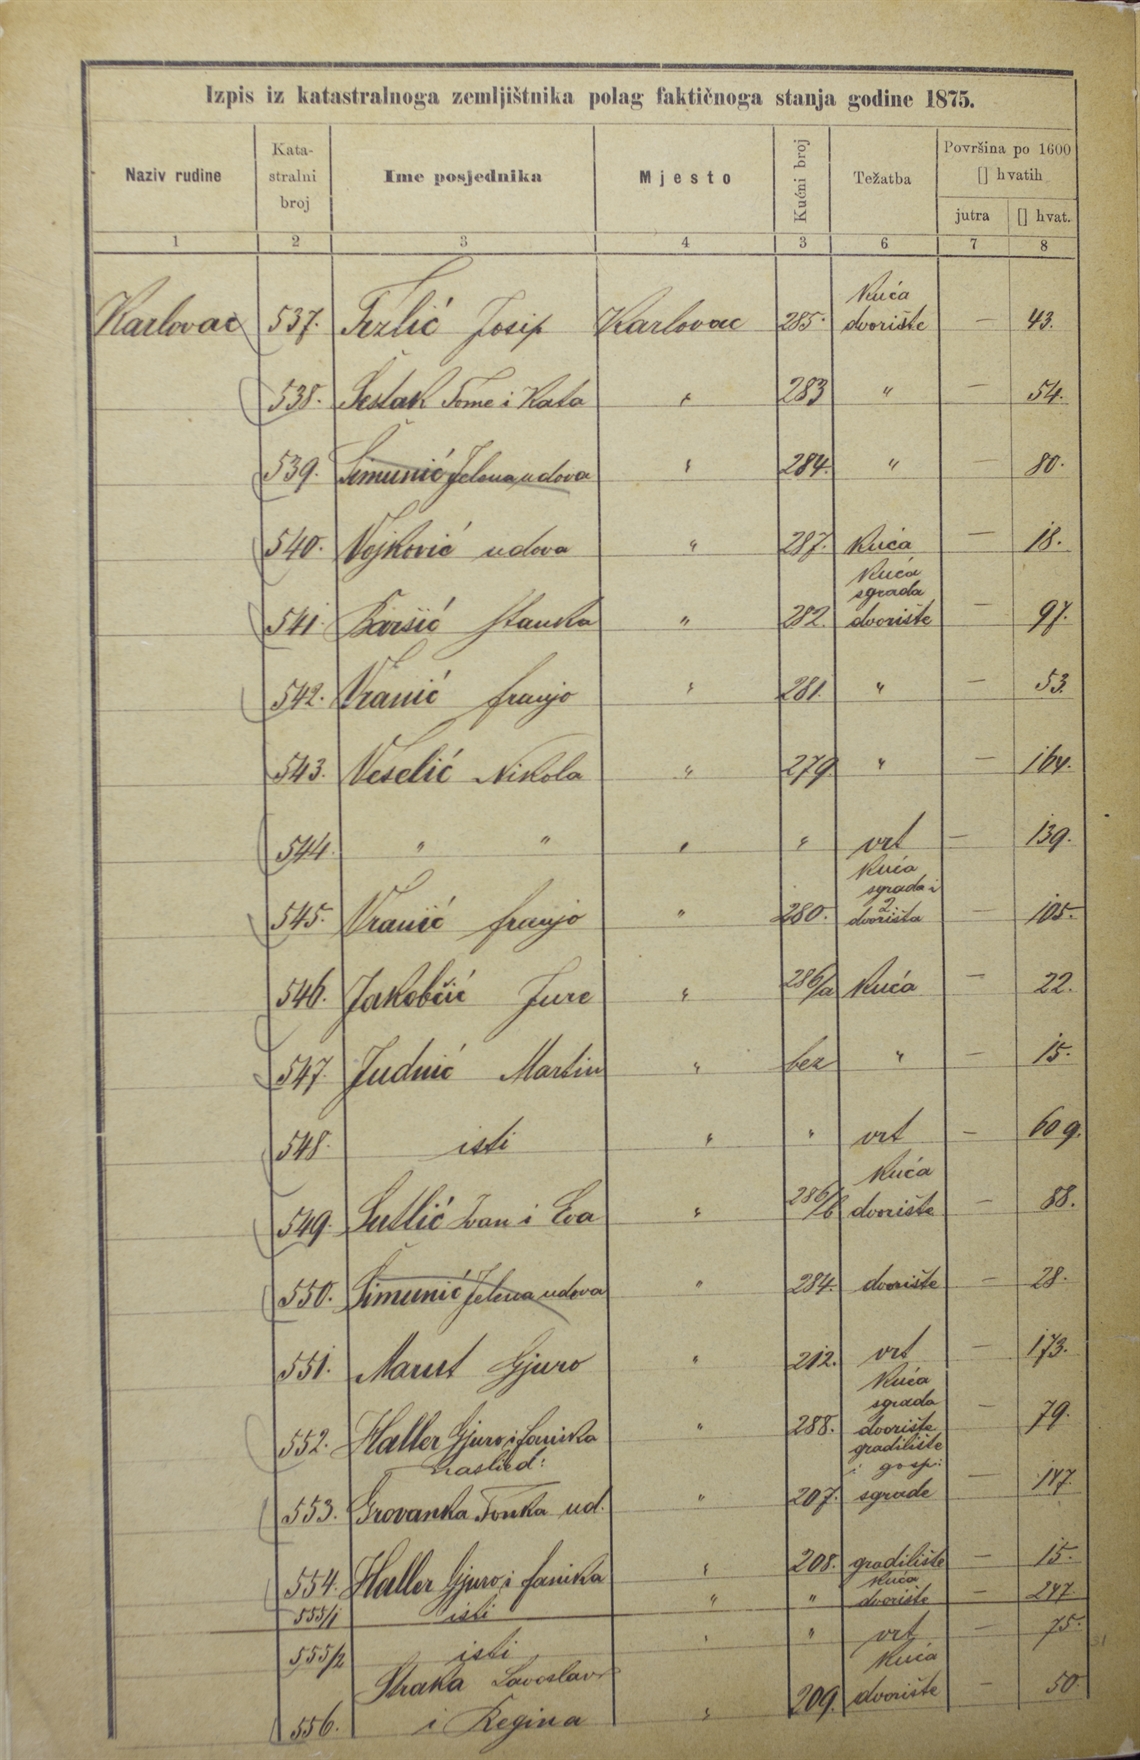 Izpis iz katastralnoga zemljištnika polag faktičnoga stanja godine 1875.
Naziv rudine Kata-stralni broj Ime posjednika Mjesto Kućni broj Težatba Površina po 1600 [] hvatih
jutra [] hvat.
1 2 3 4 3 6 7 8
Kuća
Karlovac 537. Josip Karlovac 285. dvorište — 43.
538. Šestak Tome i Kata " 283 " — 54.
539. Šimunić Jelena udova " 284. " — 80.
540. Vojković udova " 287. Kuća — 18.
Kuća
sgrada
541. Stanka " 282. dvorište — 97.
542. Vranić franjo " 281. " — 53.
543. Veselić Nikola " 279 " — 164.
544. " " " " vrt — 139.
Kuća
sgrada i
2
545. Vranić franjo " 280. dvorišta — 105.
546. Jakobčić Jure " 286/a Kuća — 22.
547. Judnić Martin " bez " — 15.
548. isti " " vrt — 609.
Kuća
549. Sutlić Ivan i Eva " 286/b dvorište — 88.
550. Šimunić Jelena udova " 284. dvorište — 28.
551. Gjuro " 212. vrt — 173.
Kuća
sgrada
552. Haller Gjuro i fanika " 288. dvorište — 79.
naslied: gradilište
i gosp:
553. Grovanka Tonka ud. " 207. sgrade — 147.
554. Haller Gjuro i fanika " 208. gradilište — 15.
Kuća
555/1 isti " " dvorište — 247
555/2 isti " " vrt — 75.
Straka Lavoslav Kuća
556. i Regina " 209. dvorište — 50.